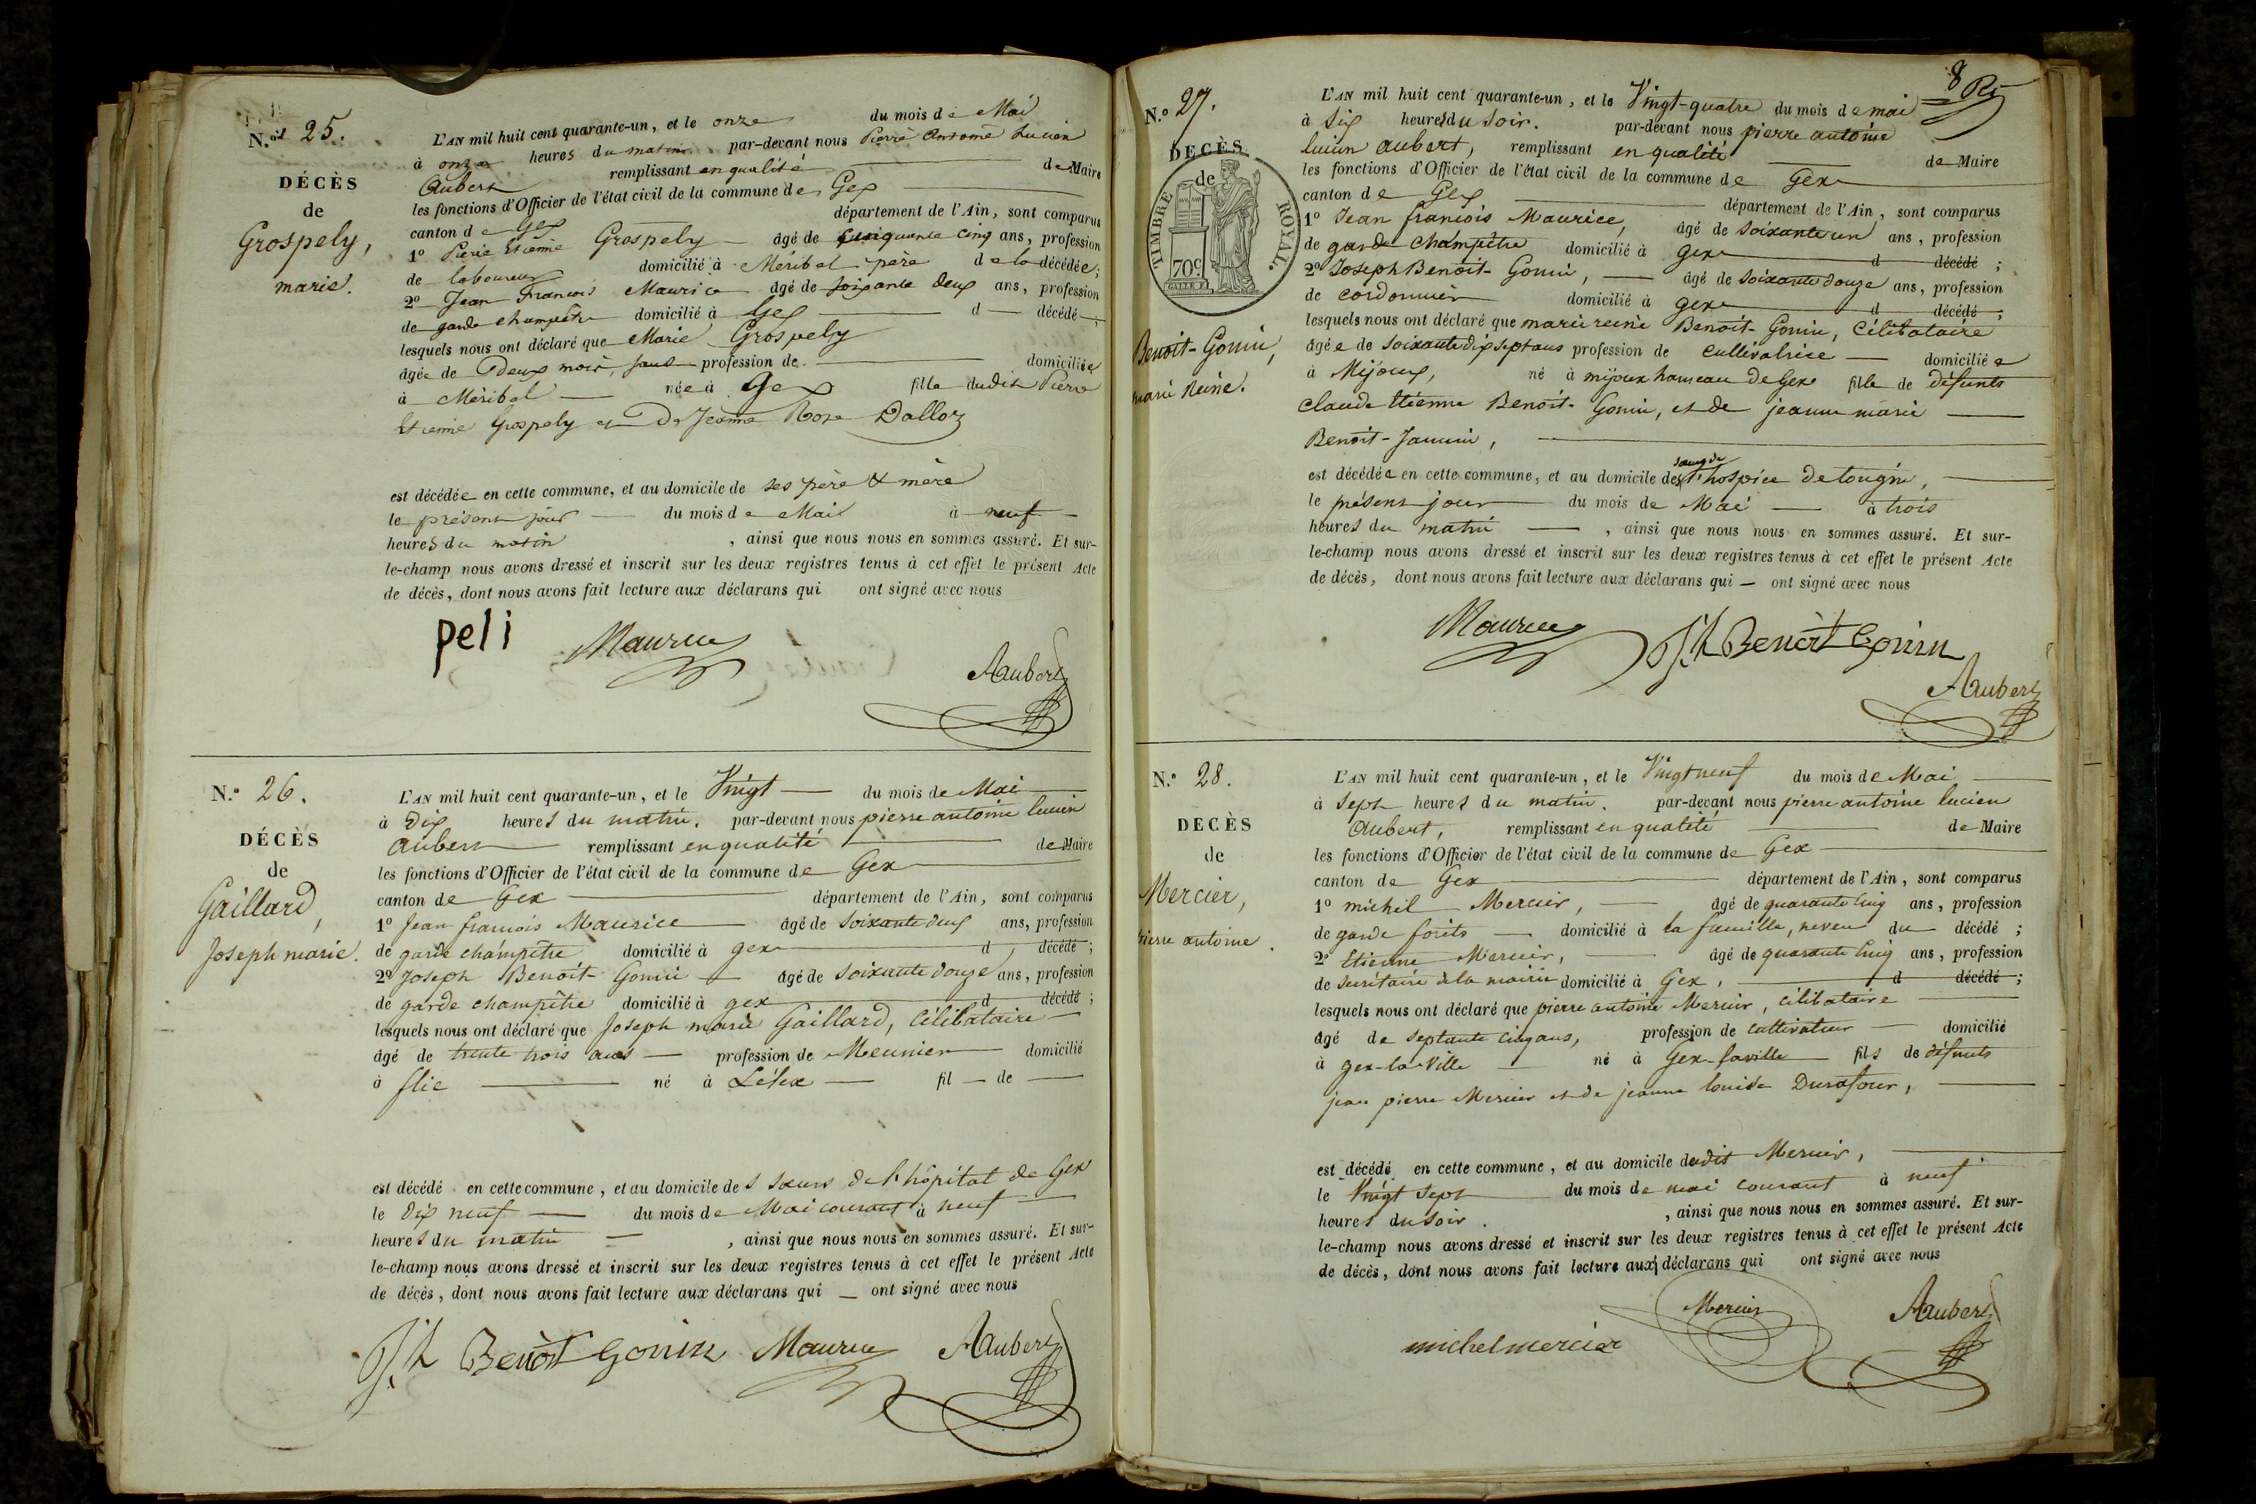 N.° 25.
DÉCÈS
de
Grospely,
marie.
L'AN mil huit cent quarante-un, et le onze du mois de Mai
à onze heures du matin par-devant nous Pierre Antoine Lucien
Aubert remplissant en qualité de Maire
les fonctions d'Officier de l'état civil de la commune de Gex
canton de Gex département de l'Ain, sont comparus
1° Pierre Etienne Grospely âgé de cinquante cinq ans, profession
de laboureur domicilié à Méribel père de la décédée;
2° Jean François Maurice âgé de soixante deux ans, profession
de garde champêtre domicilié à Gex d décédé;
lesquels nous ont déclaré que Marie Grospely
âgée de deux mois, sans profession de domiciliée
à Méribel née à Gex fille dudit Pierre
Etienne Grospely et De Jeanne Rose Dalloz
est décédée en cette commune, et au domicile de ses père & mère
le présent jour du mois de Mai à neuf
heures du matin, ainsi que nous nous en sommes assuré. Et sur-
le-champ nous avons dressé et inscrit sur les deux registres tenus à cet effet le présent Acte
de décès, dont nous avons fait lecture aux déclarans qui ont signé avec nous
peli Maurice
Aubert
N.° 26.
DÉCÈS
de
Gaillard,
Joseph marie.
L'AN mil huit cent quarante-un, et le Vingt du mois de Mai
à Dix heures du matin. par-devant nous pierre antoine lucien
Aubert remplissant en qualité de Maire
les fonctions d'Officier de l'état civil de la commune de Gex
canton de Gex département de l'Ain, sont comparus
1° Jean françois Maurice âgé de soixante deux ans, profession
de garde champêtre domicilié à gex d décédé;
2° Joseph Benoit-Gonin âgé de soixante douze ans, profession
de garde champêtre domicilié à gex d décédé;
lesquels nous ont déclaré que Joseph marie Gaillard, célibataire
âgé de trente trois ans profession de Meunier domicilié
à flie né à Lélex fil de
est décédé en cette commune, et au domicile des sœurs de l'hôpital de Gex
le dix neuf du mois de Mai courant à neuf
heures du matin, ainsi que nous nous en sommes assuré. Et sur-
le-champ nous avons dressé et inscrit sur les deux registres tenus à cet effet le présent Acte
de décès, dont nous avons fait lecture aux déclarans qui — ont signé avec nous
Jh Benoît Gonin Maurice Aubert
8
N.° 27.
DECÈS
de
TIMBRE ROYAL.
70c
Benoit-Gonin,
marie Reine.
L'AN mil huit cent quarante-un, et le Vingt-quatre du mois de mai
à six heures du soir. par-devant nous pierre antoine
lucien aubert, remplissant en qualité de Maire
les fonctions d'Officier de l'état civil de la commune de Gex
canton de Gex département de l'Ain, sont comparus
1° Jean françois Maurice, âgé de soixante un ans, profession
de garde champêtre domicilié à gex d décédé;
2° Joseph Benoit-Gonin, âgé de soixante douze ans, profession
de cordonnier domicilié à gex d décédé;
lesquels nous ont déclaré que marie reine Benoit-Gonin, célibataire
âgée de soixante dix sept ans profession de cultivatrice domiciliée
à Mijoux, né à mijoux hameau de Gex fille de défunts
Claude Etienne Benoit-Gonin, et de jeanne marie
Benoit-Jannin,
est décédée en cette commune, et au domicile des sœurs de l'hospice de tougin,
le présent jour du mois de Mai à trois
heures du matin, ainsi que nous nous en sommes assuré. Et sur-
le-champ nous avons dressé et inscrit sur les deux registres tenus à cet effet le présent Acte
de décès, dont nous avons fait lecture aux déclarans qui — ont signé avec nous
Maurice Jh Benoît Gonin
Aubert
N.° 28.
DECÈS
de
Mercier,
pierre antoine.
L'AN mil huit cent quarante-un, et le Vingt neuf du mois de Mai
à sept heures du matin. par-devant nous pierre antoine lucien
Aubert, remplissant en qualité de Maire
les fonctions d'Officier de l'état civil de la commune de Gex
canton de Gex département de l'Ain, sont comparus
1° michel Mercier, âgé de quarante cinq ans, profession
de garde forêts domicilié à la faucille, neveu du décédé;
2° Etienne Mercier, âgé de quarante cinq ans, profession
de secrétaire de la mairie domicilié à Gex, d décédé;
lesquels nous ont déclaré que pierre antoine Mercier, célibataire
âgé de septante cinq ans, profession de cultivateur domicilié
à gex-la-Ville né à Gex-laville fils de défunts
jean pierre Mercier et de jeanne louise Durafour,
est décédé en cette commune, et au domicile dudit Mercier,
le Vingt sept du mois de mai courant à neuf
heures du soir., ainsi que nous nous en sommes assuré. Et sur-
le-champ nous avons dressé et inscrit sur les deux registres tenus à cet effet le présent Acte
de décès, dont nous avons fait lecture aux déclarans qui ont signé avec nous
michel mercier Mercier Aubert